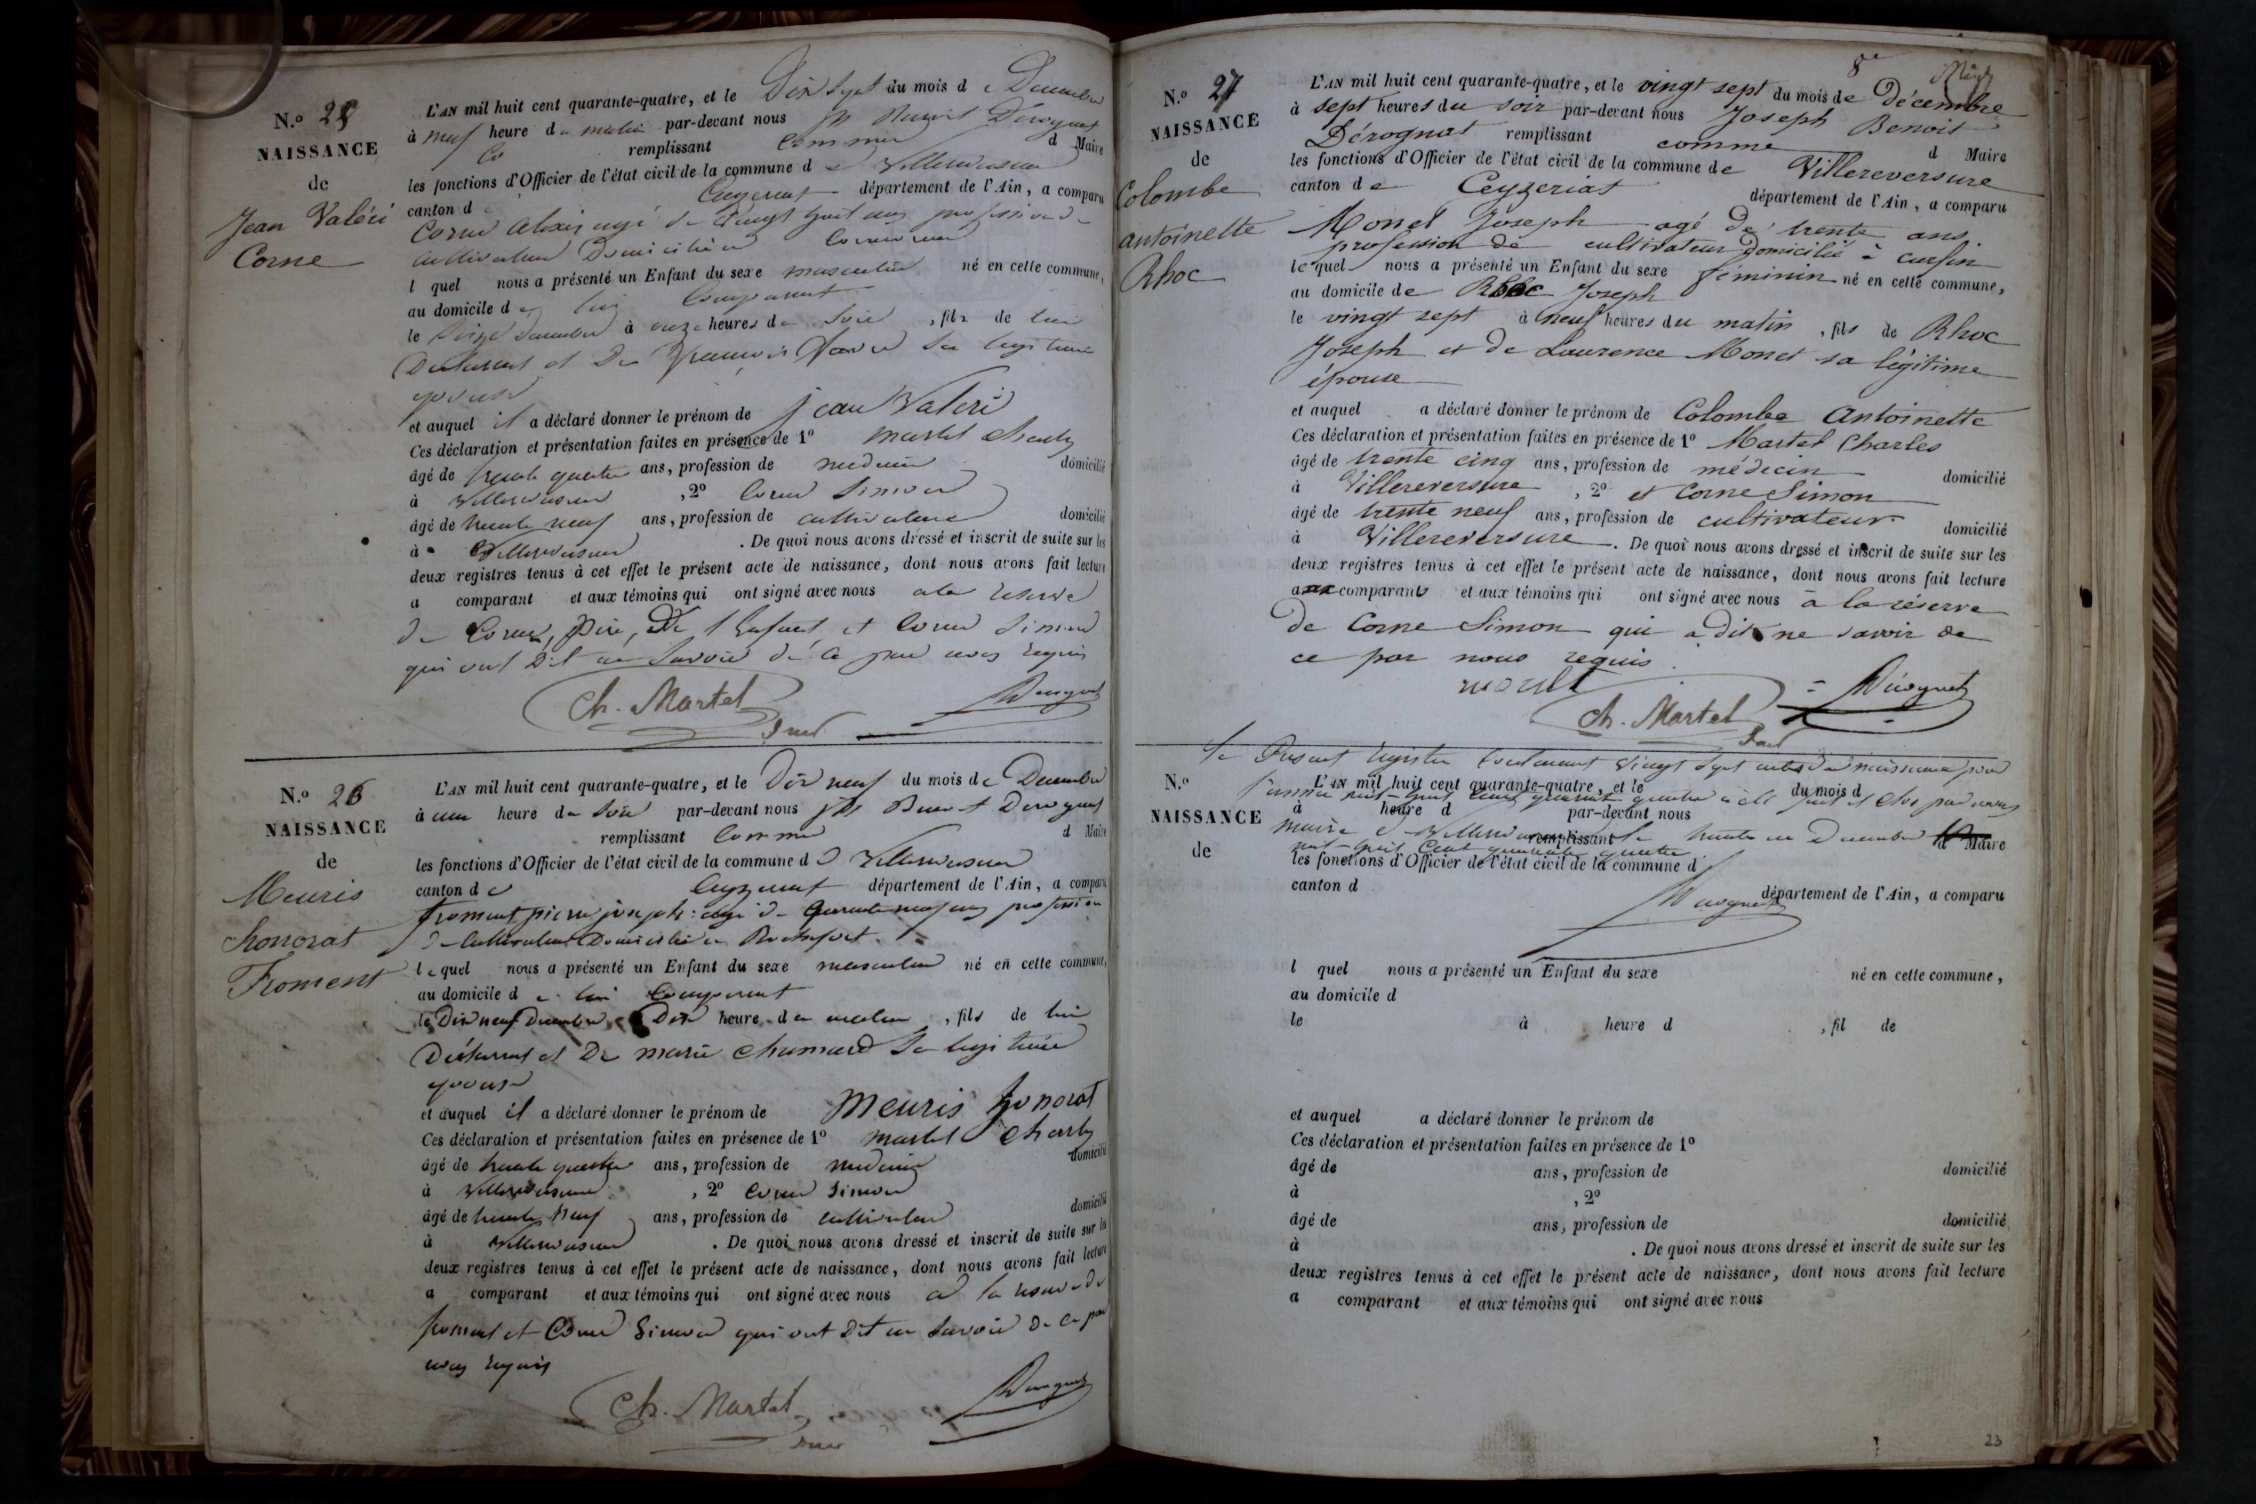 N.º 25
NAISSANCE
de
Jean Valéri
Corne
L'AN mil huit cent quarante-quatre, et le Dix Sept du mois de Decembre
à neuf heure du matin par-devant nous Jph Benoit Dérognat
remplissant comme d Maire
les fonctions d'Officier de l'état civil de la commune de Villereversure
canton de Ceyzeriat département de l'Ain, a comparu
Corne Alexis agé de vingt huit ans profession de
cultivateur Domicilié
l quel nous a présenté un Enfant du sexe masculin né en cette commune,
au domicile de lui Comparant
le seize Decembre à onze heures du soir, fils de lui
Declarant et De sa legitime
epouse
et auquel il a déclaré donner le prénom de jean Valeri
Ces déclaration et présentation faites en présence de 1º martel Charles
âgé de trente quatre ans, profession de medecin domicilié
à Villereversure, 2º Corne Simon
âgé de trente neuf ans, profession de cultivateur domicilié
à Villereversure. De quoi nous avons dressé et inscrit de suite sur les
deux registres tenus à cet effet le présent acte de naissance, dont nous avons fait lecture
a comparant et aux témoins qui ont signé avec nous a la reserve
de Corne, père, De l'Enfant et Corne Simon
qui ont Dit ne Savoir de ce par nous requis
Ch. Martel Dérognat
N.º 26
NAISSANCE
de
Meuris
honorat
Froment
L'AN mil huit cent quarante-quatre, et le Dix neuf du mois de Decembre
à une heure du Soir par-devant nous Jph Benoit Derognat
remplissant Comme d Maire
les fonctions d'Officier de l'état civil de la commune de Villereversure
canton de Ceyzeriat département de l'Ain, a comparu
froment pierre joseph agé de quarante neuf ans profession
de cultivateur Domicilié a Rochefort
lequel nous a présenté un Enfant du sexe masculin né en cette commune,
au domicile de lui Comparant
le Dix neuf Decembre à Dix heure du matin, fils de lui
Declarant et De marie chanard Sa legitime
epouse
et auquel il a déclaré donner le prénom de Meuris honorat
Ces déclaration et présentation faites en présence de 1º martel Charles
âgé de trente quatre ans, profession de medecin domicilié
à Villereversure, 2º Corne Simon
âgé de trente neuf ans, profession de cultivateur domicilié
à Villereversure. De quoi nous avons dressé et inscrit de suite sur les
deux registres tenus à cet effet le présent acte de naissance, dont nous avons fait lecture
a comparant et aux témoins qui ont signé avec nous a la reserve de
froment et Corne Simon qui ont Dit ne Savoir De ce par
nous requis
Ch. Martel Dérognat
8e
N.º 27
NAISSANCE
de
Colombe
antoinette
Rhoc
L'AN mil huit cent quarante-quatre, et le vingt sept du mois de Décembre
à sept heures du soir par-devant nous Joseph Benoit
Dérognat remplissant comme d Maire
les fonctions d'Officier de l'état civil de la commune de Villereversure
canton de Ceyzeriat département de l'Ain, a comparu
Monet Joseph agé de trente ans
profession de cultivateur domicilié à
le quel nous a présenté un Enfant du sexe féminin né en cette commune,
au domicile de Rhoc Joseph
le vingt sept à neuf heures du matin, fils de Rhoc
Joseph et de Laurence Monet sa légitime
épouse
et auquel a déclaré donner le prénom de Colombe Antoinette
Ces déclaration et présentation faites en présence de 1º Martel Charles
âgé de trente cinq ans, profession de médecin domicilié
à Villereversure, 2º et Corne Simon
âgé de trente neuf ans, profession de cultivateur domicilié
à Villereversure. De quoi nous avons dressé et inscrit de suite sur les
deux registres tenus à cet effet le présent acte de naissance, dont nous avons fait lecture
aux comparants et aux témoins qui ont signé avec nous à la réserve
de Corne Simon qui a dit ne savoir de
ce par nous requis
Ch. Martel Dérognat
Le Present registre Contenant vingt Sept actes de naissance pour
l'année mil huit Cent quarante quatre a été par nous
maire de Villereversure le trente un Decembre
mil huit Cent quarante quatre
Dérognat
N.º
NAISSANCE
de
L'AN mil huit cent quarante-quatre, et le du mois d
à heure d par-devant nous
remplissant d Maire
les fonctions d'Officier de l'état civil de la commune d
canton d département de l'Ain, a comparu
l quel nous a présenté un Enfant du sexe né en cette commune,
au domicile d
le à heure d, fil de
et auquel a déclaré donner le prénom de
Ces déclaration et présentation faites en présence de 1º
âgé de ans, profession de domicilié
à, 2º
âgé de ans, profession de domicilié
à. De quoi nous avons dressé et inscrit de suite sur les
deux registres tenus à cet effet le présent acte de naissance, dont nous avons fait lecture
a comparant et aux témoins qui ont signé avec nous
23